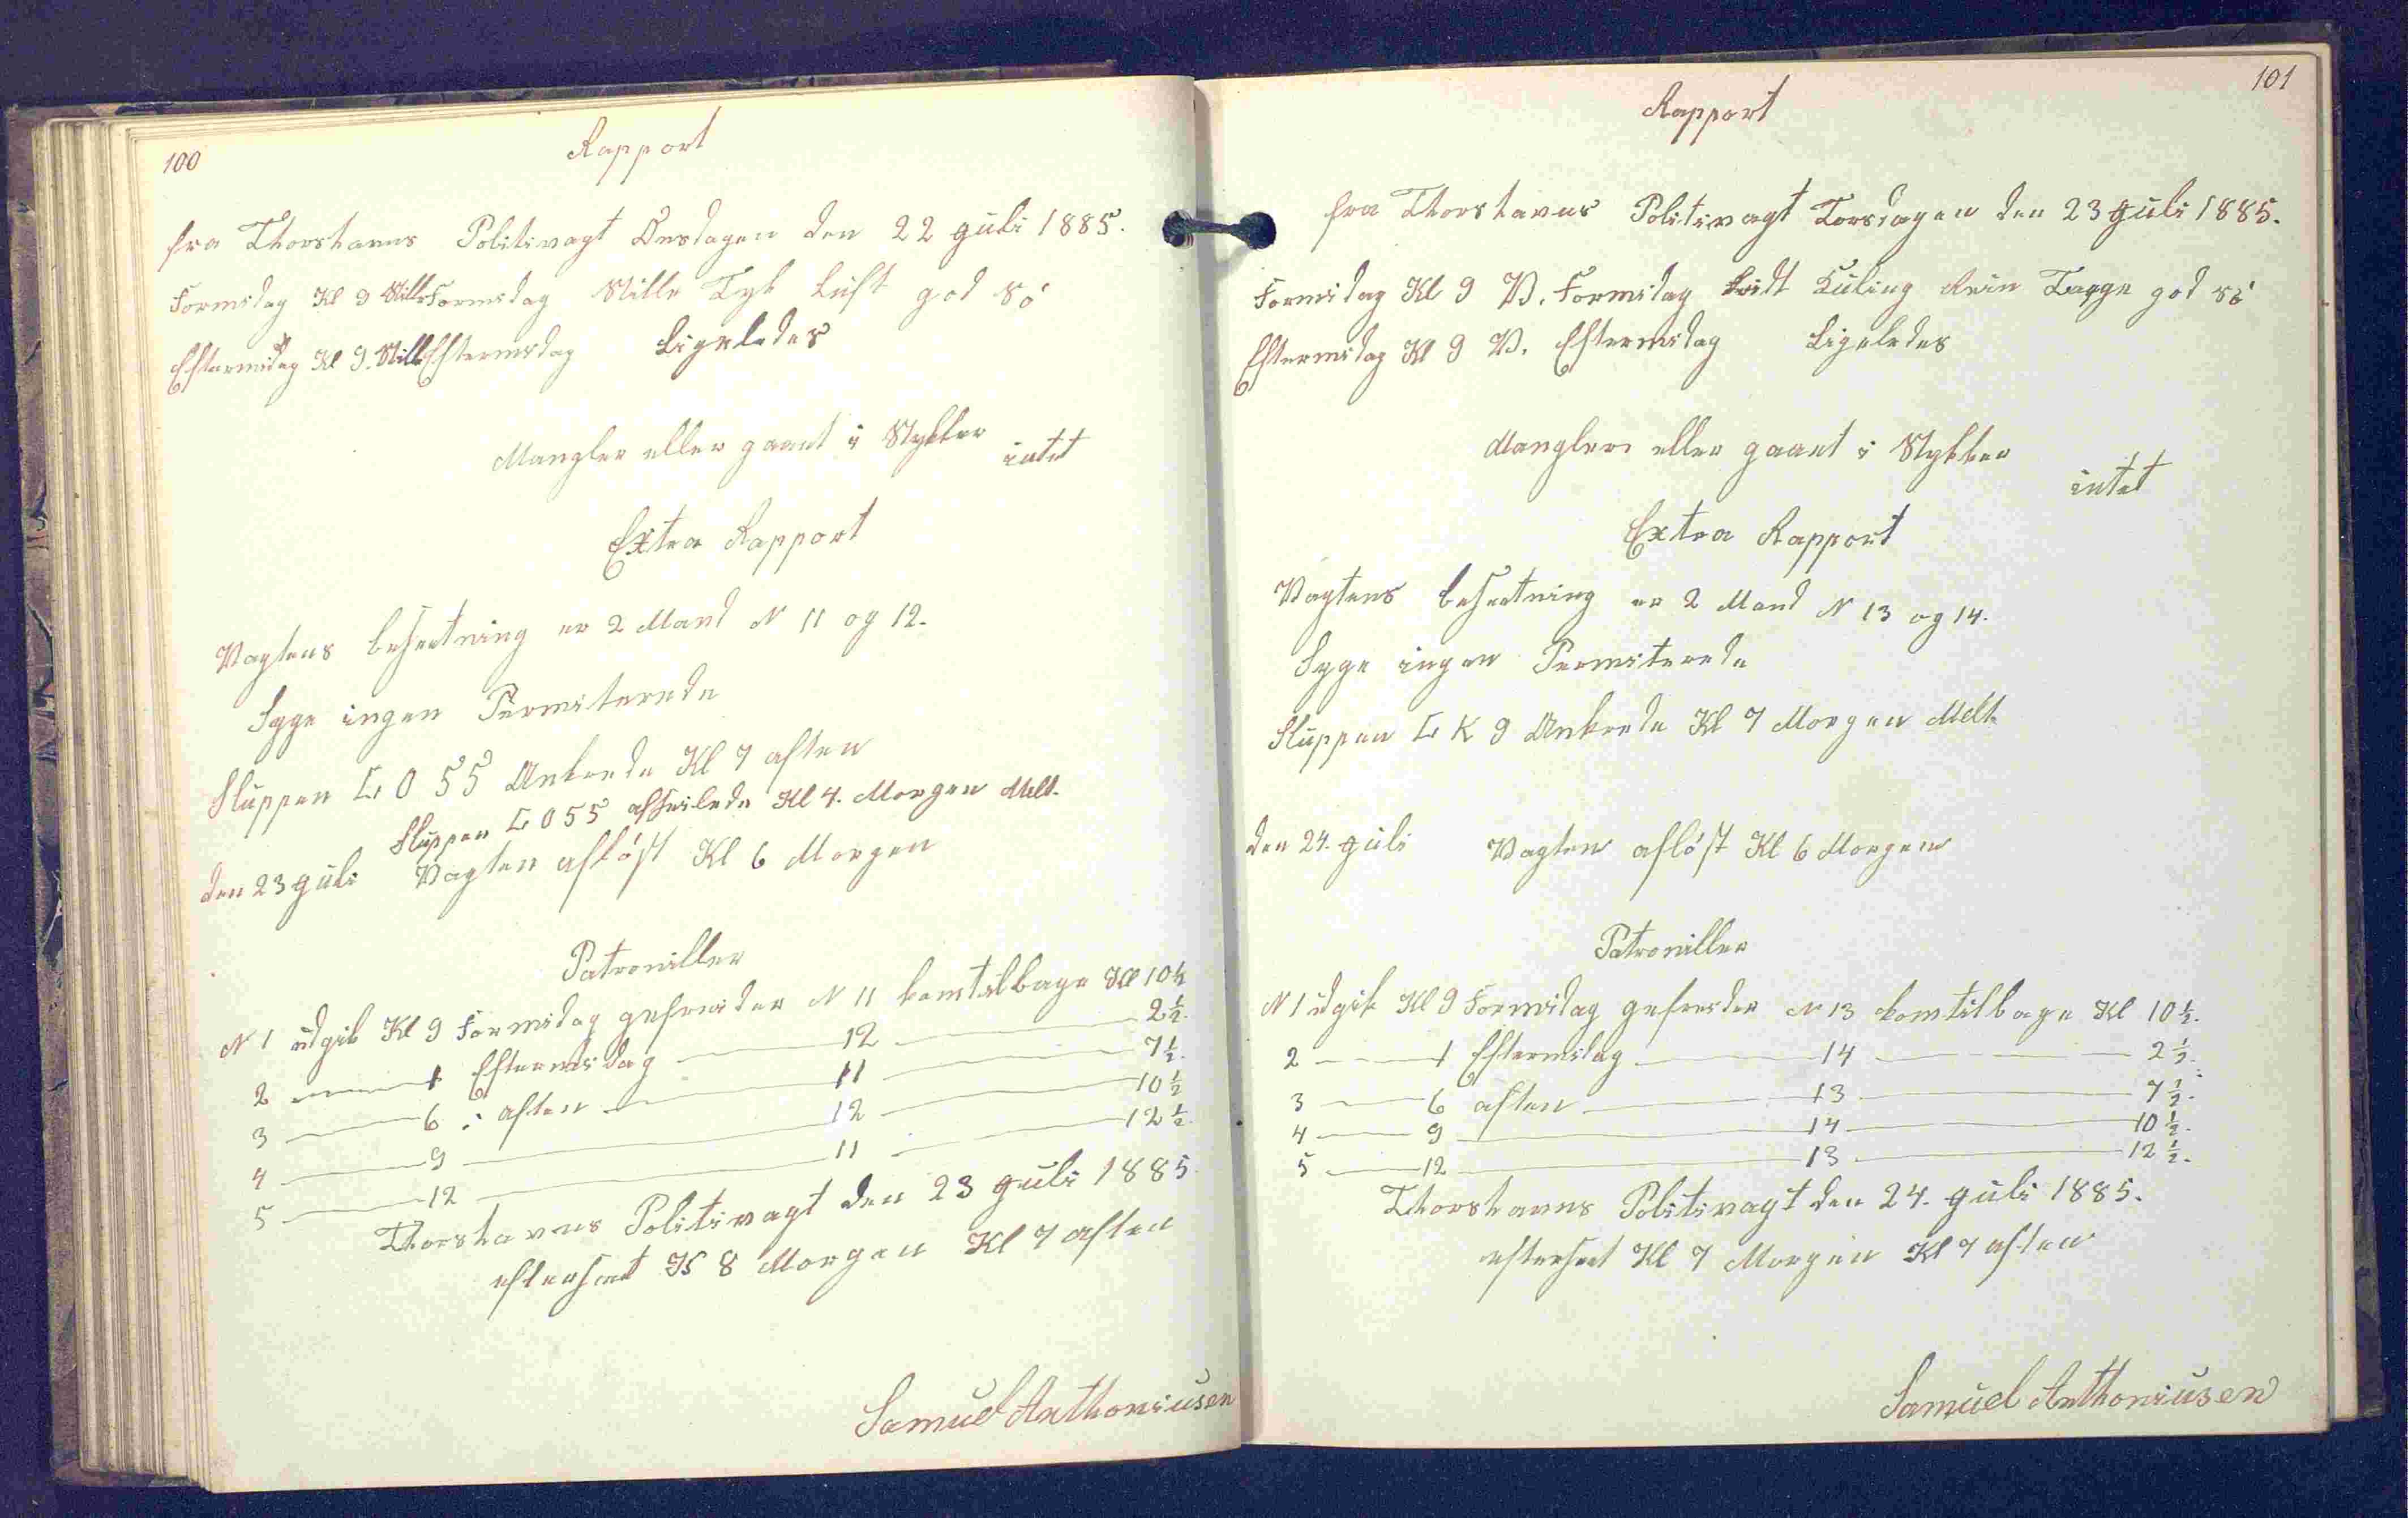 100
Rapport
fra Thorshavns Politivagt Onsdagen den 22 Juli 1885.
Formidag Kl 9 Stille Formidag Stille Tyk Luft god Sö
Eftermidag Kl 9. Stille Eftermidag Ligeledes
Mangler eller gaaet i Stykker intet
Extra Rapport
Vagtens besætning er 2 Mand N 11 og 12.
Syge ingen Permiterede
Sluppen L O 55 Ankrede Kl 7 aften
Sluppen L O 55 afseilede Kl 4. Morgen Melt.
den 23 Juli Vagten aflöst Kl 6 Morgen
Patrouiller
N 1 udgik Kl 9 Formidag gefreider N 11 kom tilbage Kl 10 ½
2 — 1 Eftermidag — 12 — 2 ½.
3 — 6 : aften — 11 — 7 ½.
4 — 9 — 12 — 10 ½
5 — 12 — 11 — 12 ½.
Thorshavns Politivagt den 23 Juli 1885.
efterseet Kl 8 Morgen Kl 7 aften
Samuel Anthoniusen
101
Rapport
fra Thorshavns Politivagt Torsdagen den 23 Juli 1885.
Formidag Kl 9 V. Formidag Lidt Kuling Rein Tagge god sö
Eftermidag Kl 9 V. Eftermidag Ligeledes
Mangler eller gaaet i Stykker intet
Extra Rapport
Vagtens besætning er 2 Mand N 13 og 14.
Syge ingen Permiterede
Sluppen L K 9 Ankrede Kl 7 Morgen Melt.
den 24. Juli Vagten aflöst Kl 6 Morgen
Patrouiller
N 1 udgik Kl 9 Formidag gefreider N 13 kom tilbage Kl 10 ½.
2 — 1 Eftermidag — 14 — 2 ½.
3 — 6 aften — 13 — 7 ½.
4 — 9 — 14 — 10 ½.
5 — 12 — 13 — 12 ½.
Thorshavns Politivagt den 24. Juli 1885.
efterseet Kl 7 Morgen Kl 7 aften
Samuel Anthoniusen